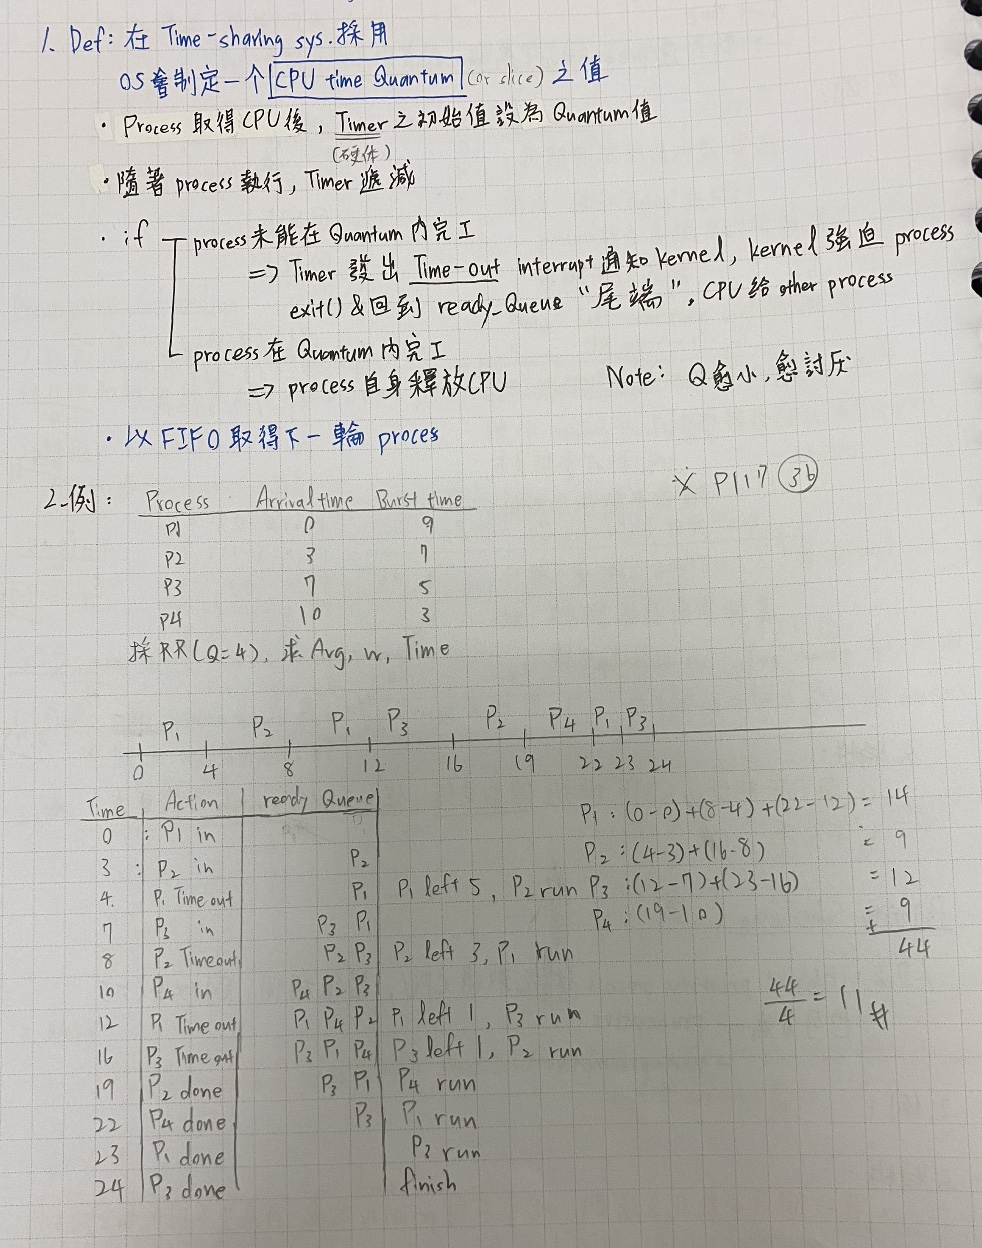 1. Def: 在 Time-sharing sys.採用
OS會制定一个 CPU time Quantum (or slice) 之值
· Process 取得CPU後, Timer 之初始值設為 Quantum值
(硬体)
· 隨著 process 執行, Timer 遞減
· if process未能在 Quantum 內完工
=> Timer 發出 Time-out interrupt 通知 kernel, kernel 強迫 process
exit() & 回到 ready_Queue "尾端", CPU 給 other process
process 在 Quantum 內完工
=> process 自身釋放CPU Note: Q愈小,愈討厌
· 以 FIFO 取得下一輪 proces
※ P117 36
2.例: Process Arrival time Burst time
P1 0 9
P2 3 7
P3 7 5
P4 10 3
採RR(Q=4), 求 Avg, w, Time
P1 P2 P1 P3 P2 P4 P1 P3
0 4 8 12 16 19 22 23 24
Time Action ready Queue
0 : P1 in
3 : P2 in P2
4. P1 Time out P1 P1 left 5, P2 run
7 P3 in P3 P1
8 P2 Timeout P2 P3 P2 left 3, P1 run
10 P4 in P4 P2 P3
12 P1 Time out P1 P4 P2 P1 left 1, P3 run
16 P3 Time out P3 P1 P4 P3 left 1, P2 run
19 P2 done P3 P1 P4 run
22 P4 done P3 P1 run
23 P1 done P3 run
24 P3 done finish
P1 : (0-0)+(8-4)+(22-12) = 14
P2 : (4-3)+(16-8) = 9
P3 : (12-7)+(23-16) = 12
P4 : (19-10) = 9
+
44
44/4 = 11 #